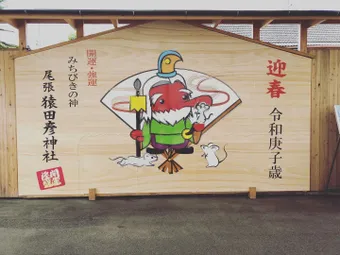 迎春
令和庚子歳
開運・強運
みちびきの神
尾張猿田彦神社